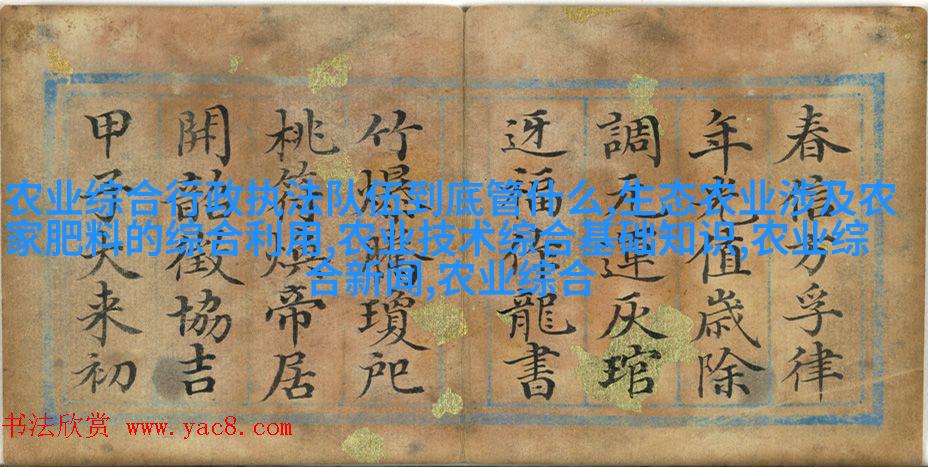 春信方孚律
年光值歲除
調元運灰琯
迓福龍書
竹爆瓊戺
桃符煥帝居
開韶徵協吉
甲子来初
农业综合行政执法队伍到底管什么,生态农业涉及农
家肥料的综合利用,农业技术综合基础知识,农业综
合新闻,农业综合
书法欣赏 www.yac8.com